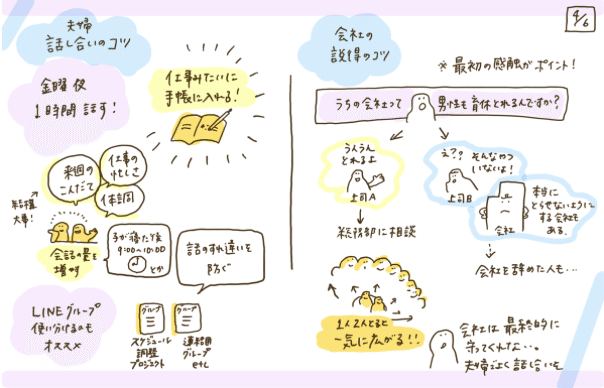 4/6
夫婦
話し合いのコツ
金曜夜
1時間話す!
仕事みたいに
手帳に入れる!
来週の
こんだて
仕事の
忙しさ
体調
結構
大事!
会話の量を
増やす
子が寝た後
9:00~10:00
とか
話のすれ違いを
防ぐ
LINEグループ
使い分けるのも
オススメ
グループ
スケジュール
調整
プロジェクト
グループ
連絡用
グループ
etc
会社の
説得のコツ
※最初の感触がポイント!
うちの会社って
男性も育休とれるんですか?
うんうん
とれるよ
上司A
え??そんなやつ
いないよ!
上司B
会社
本当に
とらせないように
する会社も
ある.
総務部に相談
会社を辞めた人も…
1人2人とると
一気に広がる!!
会社は最終的に
守ってくれない…。
夫婦でよく話し合いを